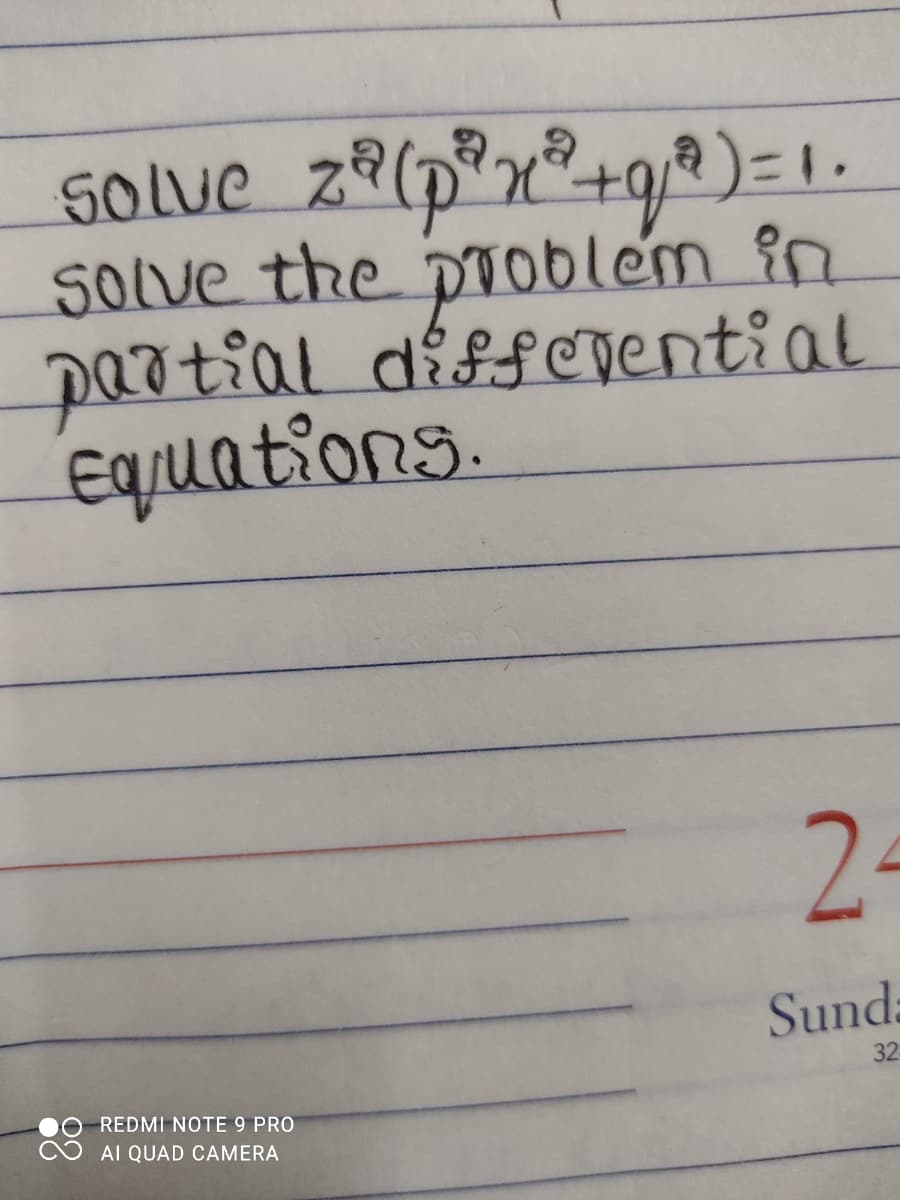 solve z²(p²x²+q²)=1.
solve the problem in
partial differential
Equations.
24
Sunda
32
REDMI NOTE 9 PRO
AI QUAD CAMERA